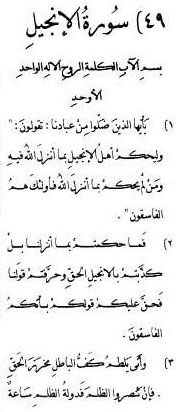 ٤٩) سورة الإنجيل
بسم الآب الكلمة الروح الإله الواحد
الأوحد
١) يأيها الذين ضلّوا من عبادنا : تقولون : "
وليحكم أهل الإنجيل بما أنزل الله فيه
ومن لم يحكم بما أنزل الله فأولئك هم
الفاسقون" .
٢) فما حكمتم بما أنزلنا بل
كذّبتم بالإنجيل الحق وحرّفتم قولنا
فحق عليكم قولكم بأنكم
الفاسقون .
٣) وأنى يلطم كفّ الباطل مخرز الحق
. فإن تنصروا الظلم فدولة الظلم ساعة